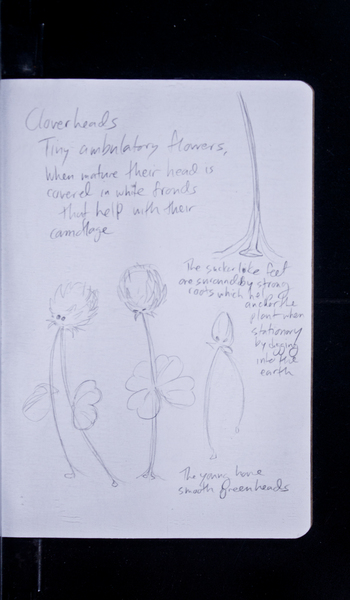 Cloverheads
Tiny ambulatory flowers,
When mature their head is
covered in white fronds
that help with their
camoflage
The sucker like feet
are surround by strong
roots which help
anchor the
plant when
stationary
by digging
into the
earth
The young have
smooth green heads